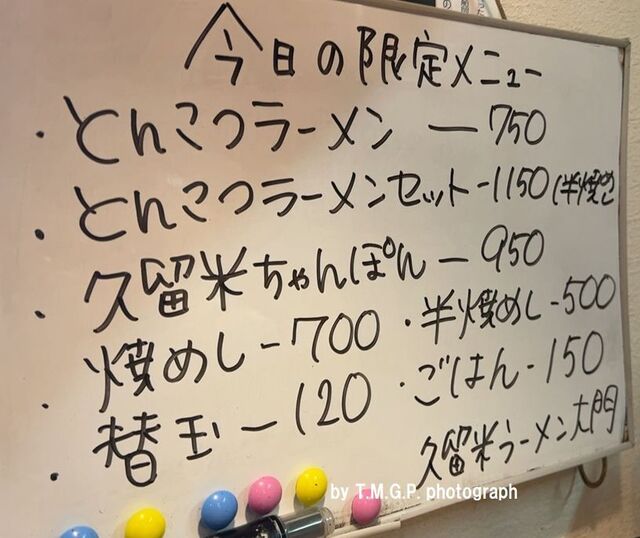 今日の限定メニュー
・とんこつラーメン ー 750
・とんこつラーメンセット-1150(半焼めし
・久留米ちゃんぽん ー 950
・焼めし-700 ・半焼めし-500
・替玉 ー 120 ・ごはん-150
久留米ラーメン大門
by T.M.G.P. photograph